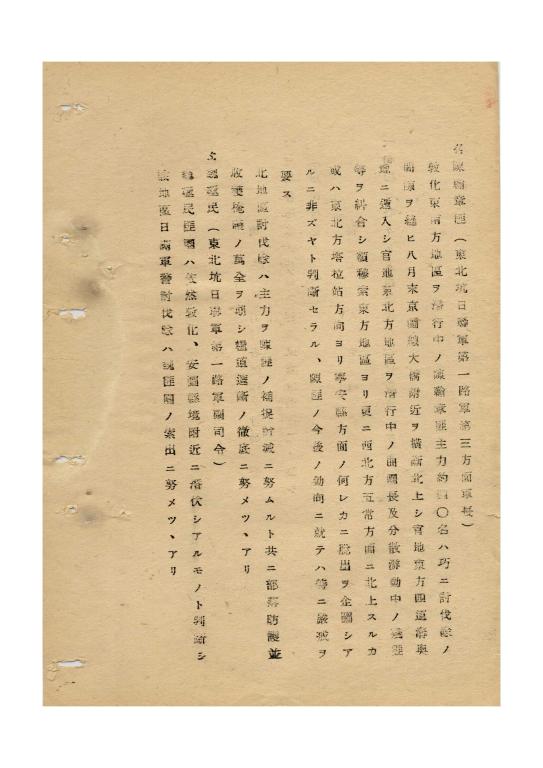 陳翰章匪(東北抗日聯軍第一路軍第三方面軍長)
敦化東南方地區ヲ潜行中ノ陳翰章匪主力約四〇名ハ巧ニ討伐隊ノ
間隙ヲ縫ヒ八月末京圖線大橋附近ヲ橫斷北上シ官地東方四道溝奧
地ニ遁入シ官地東北方地區ヲ潜行中ノ團長及分散游動中ノ殘匪
等ヲ糾合シ額穆索東方地區ヨリ更ニ西北方五常方面ニ北上スルカ
或ハ東北方塔拉站方向ヨリ寧安縣方面ノ何レカニ脫出ヲ企圖シア
ルニ非ズヤト判斷セラル、陳匪ノ今後ノ動向ニ就テハ特ニ嚴戒ヲ
要ス
北地區討伐隊ハ主力ヲ陳匪ノ捕捉討滅ニ努ムルト共ニ部落防護並
收護掩護ノ萬全ヲ期シ糧道遮斷ノ徹底ニ努メツヽアリ
魏拯民(東北抗日聯軍第一路軍副司令)
魏拯民匪團ハ依然敦化、安圖縣境附近ニ潜伏シアルモノト判斷シ
該地區日滿軍警討伐隊ハ魏匪團ノ索出ニ努メツヽアリ